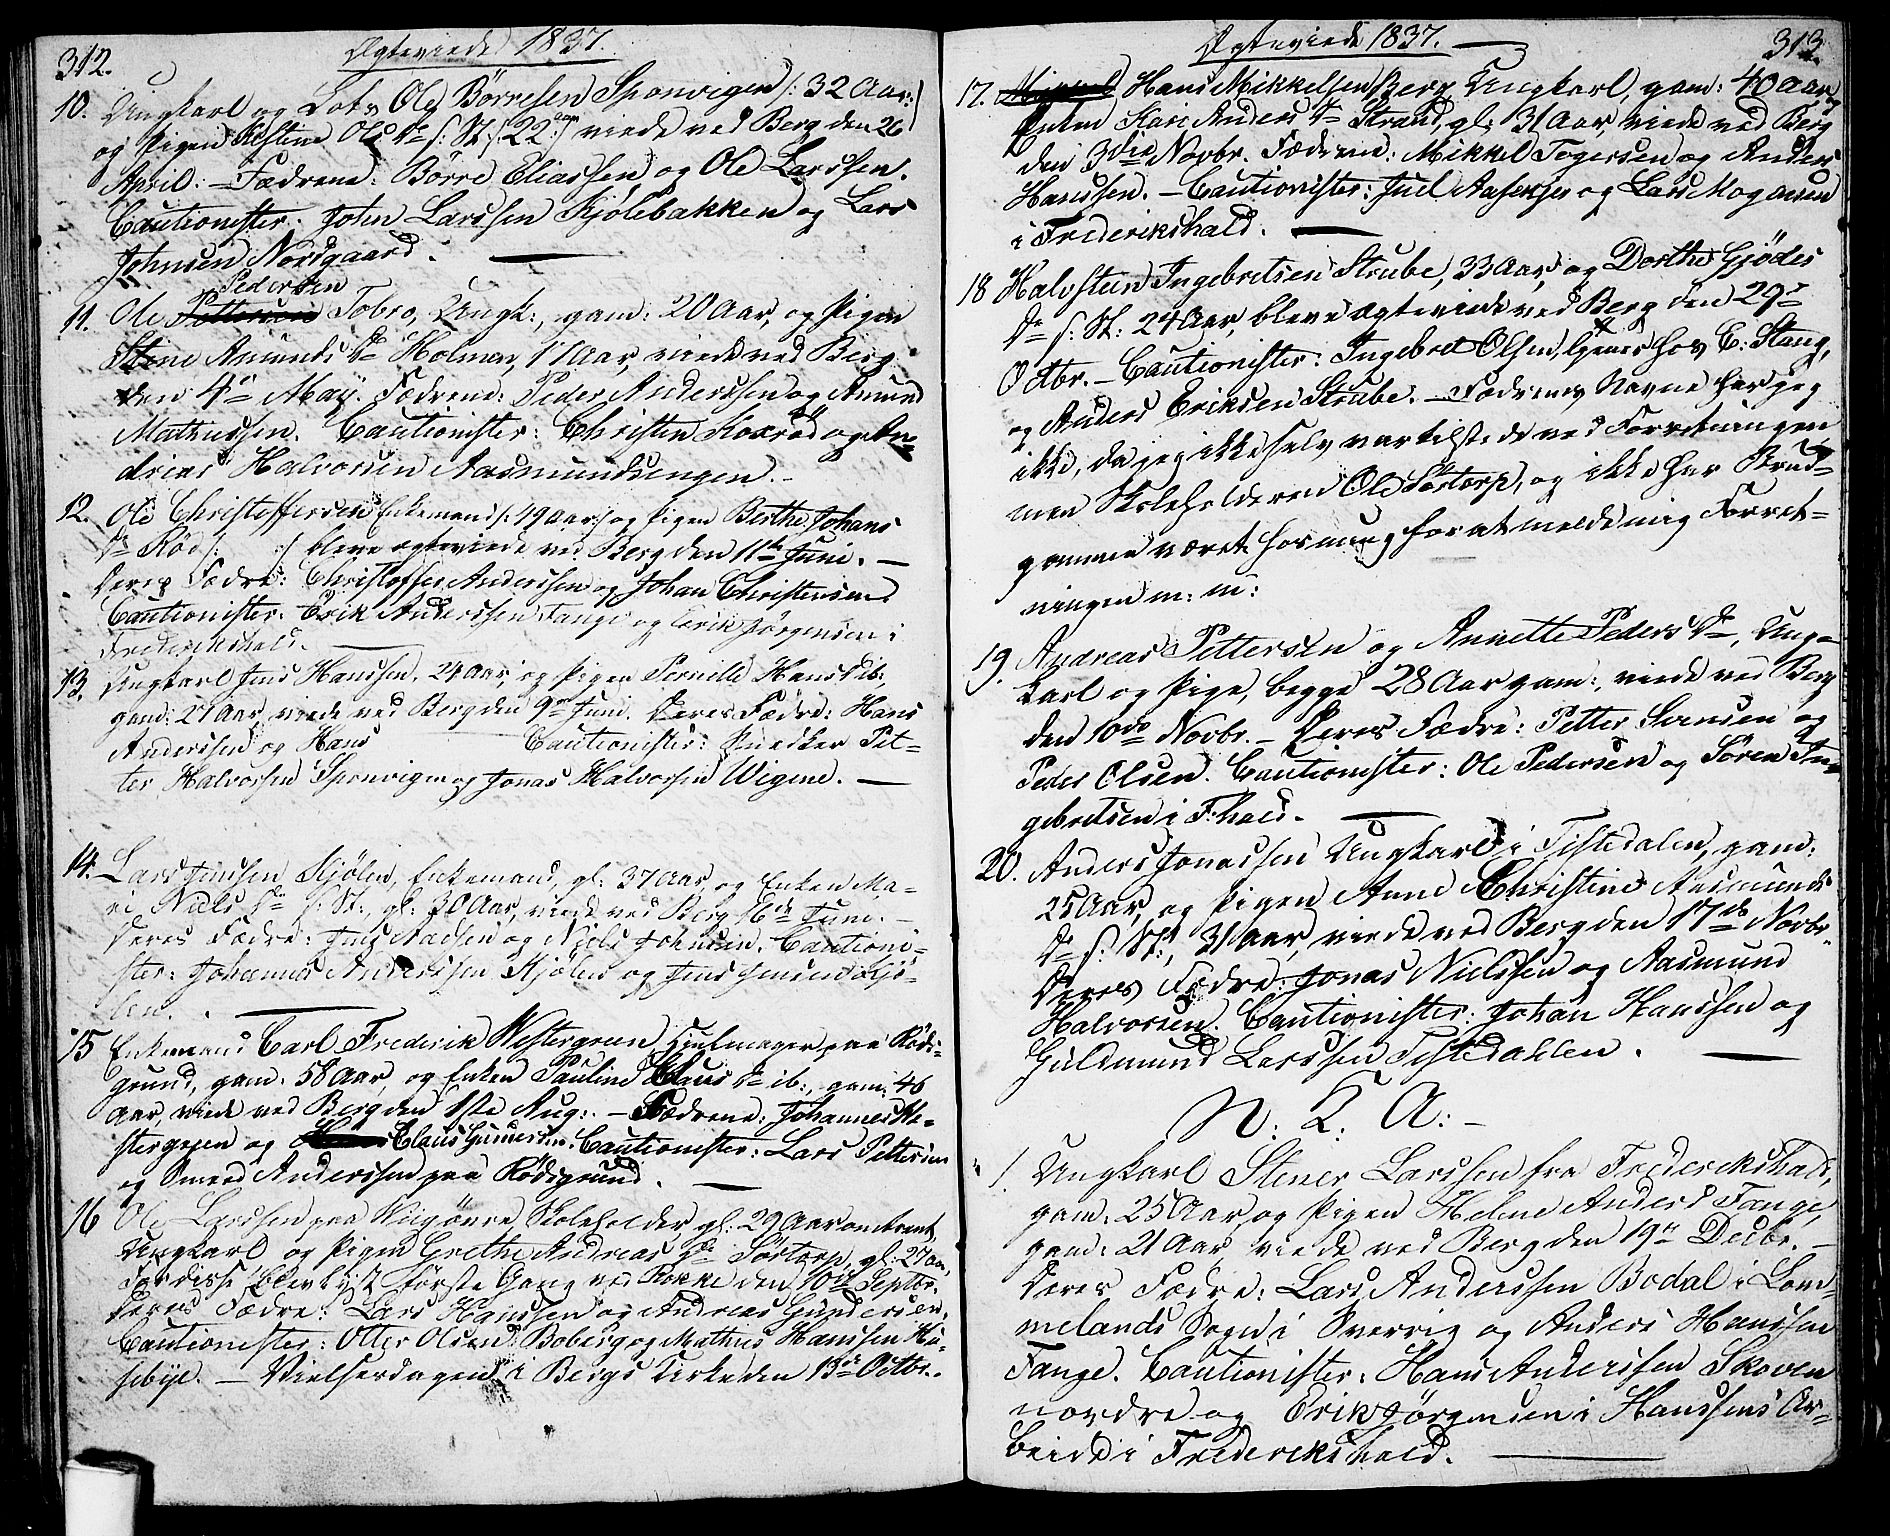 312.
Ægteviede 1837.
10. Ungkarl og Lots Ole Børresen Sponvigen /: 32 Aar :/
og Pigen Olsd. s. St. /: 22 aar :/ viede ved Berg den 26
April. – Fædrene: Børre Eliassen og Ole Larssen.
Cautionister: John Larssen Kjølebakken og Lars
Johnsen Nordgaard.
Pedersen
11. Ole Pettersen Tobro, Ungk:, gam: 20 Aar, og Pigen
Stine Amunds Dr Holmen, Aar, viede ved Berg
den 4de May. Fædrene: Peder Anderssen og Amund
Mathissen. Cautionister: Christen Koxrød og An-
dreas Halvorsen Aasmundsengen. –
12. Ole Christoffersen Enkemand /: 49 Aar :/ og Pigen Berthe Johans
Dr Rød /: :/ bleve ægteviede ved Berg den 11te Juni. –
Deres Fædre: Christoffer Anderssen og Johan Christensen.
Cautionister: Erik Anderssen Tange og Erik Jørgensen i
Frederikshald.
13. Ungkarl Jens Hanssen, 24 Aar, og Pigen Pernille Hans D ib:
gam: 27 Aar, viede ved Berg den 9de Juni. Deres Fædre: Hans
Anderssen og Hans Cautionister: Snedker Pet-
ter Halvorsen Sponvigen og Jonas Halvorsen Wigene. –
14. Lars Jensen Kjølen, Enkemand, gl: 37 Aar, og Enken Ma-
ri Niels Dr s. St:, gl: 30 Aar, viede ved Berg 16de Juni. –
Deres Fædre: Jens og Niels Johnsen. Cautioni-
ster: Johannes Anderssen Kjølen og Jens Jensen Kjø-
len.
15 Enkemand Carl Frederik Westergreen Hjulmager paa Røds-
grund, gam: 58 Aar, og Enken Pauline Claus Dr ib:, gam: 46
Aar, viede ved Berg den 1ste Aug: – Fædrene: Johannes We-
stergreen og Claus Gundersen. Cautionister: Lars Pettersen
og Svend Anderssen paa Rødsgrund.
16 Ole Larssen paa Skoleholder, gl: 29 Aar omtrent,
Ungkarl og Pigen Grethe Andreas Dr Sørtorp, gl: 27 Aar,
For disse blev lyst første Gang ved Rokke den 10de Septbr.
Deres Fædre: Lars Hanssen og Andreas Gundersen,
Cautionister: Otter Olsen Boberg og Mathis Hanssen Hu-
sebye. – Vielsesdagen i Bergs Kirke den 13de Octbr.
Ægteviede 1837.
313.
17. Hans Mikkelsen Berg, Ungkarl, gam: 40 Aar, og
Enken Kari Anders Dr Strand, gl: 31 Aar, viede ved Berg
den 3die Novbr. Fædrene: Mikkel Togersen og Anders
Hanssen. – Cautionister: Juel Aasengen og Lars Mogensen
i Frederikshald.
18 Halvsteen Ingebretsen Strube, 33 Aar, og Dorthe Gjødes
Dr s. St: 24 Aar, bleve ægteviede ved Berg den 29de
Octbr. – Cautionister: Ingebret Olsen, tjener hos E: Stang,
og Anders Eriksen Strube. – Fædrenes Navne har jeg
ikke, da jeg ikke selv var tilstede ved Forretningen,
men Skoleholderen Ole Sørtorp, og ikke har Brud-
gommen været hos mig for at melde mig Forret-
ningen m: m:
19. Andreas Pettersen og Annette Peders Dr, Ung-
karl og Pige, begge 28 Aar gam:, viede ved Berg
den 10de Novbr. – Deres Fædre: Petter Svensen og
Peder Olsen. Cautionister: Ole Pedersen og Søren In-
gebretsen i F:hald.
20. Anders Jonassen Ungkarl i Tistedalen, gam:
25 Aar, og Pigen Anne Christine Aasmunds
Dr s. St:, 31 Aar, viede ved Berg den 17de Novbr.
Deres Fædre: Jonas Nielssen og Aasmund
Halvorsen. Cautionister: Johan Hanssen og
Guldmund Larssen Tistedahlen.
N. K. A: –
1. Ungkarl Stener Larssen fra Frederikshald,
gam: 25 Aar, og Pigen Helene Anders D Tange,
gam: 21 Aar viede ved Berg den 19de Decbr. –
Deres Fædre: Lars Anderssen Bodal i Lom-
melands Sogn i Sverrig og Anders Hanssen
Tange. Cautionister: Hans Anderssen Skoven
nordre og Erik Jørgensen i Hanssens Ar-
beide i Frederikshald.